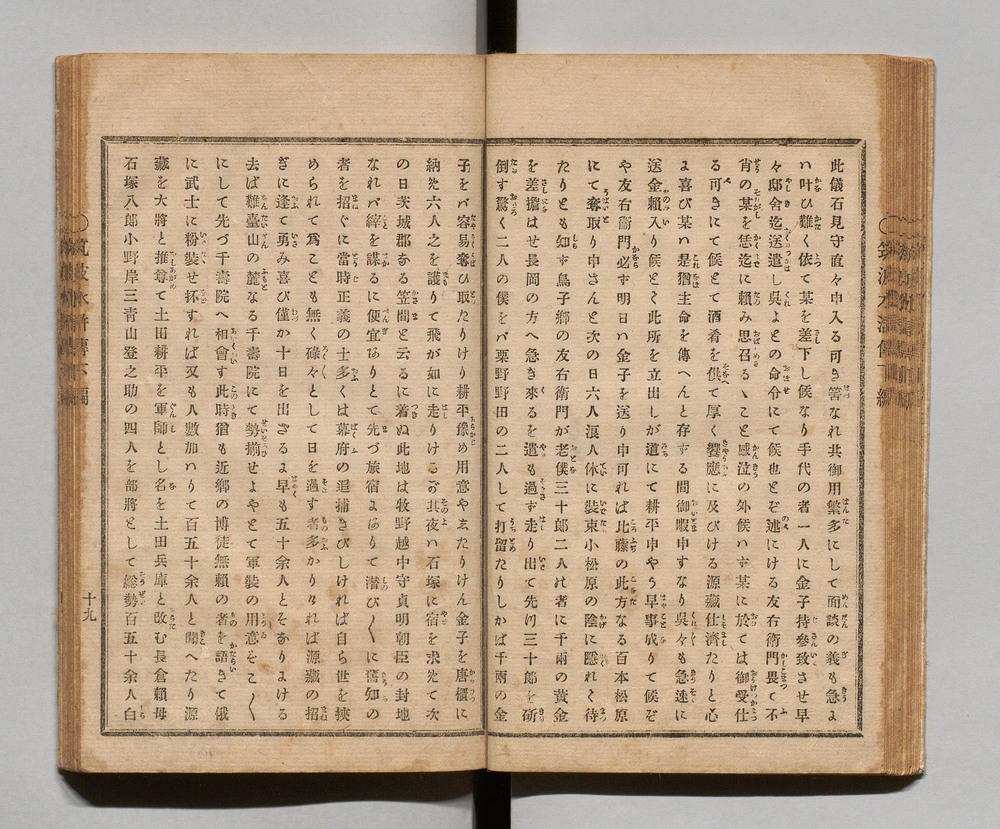 此儀石見守直々申入る可き筈なれ共御用繁多にして面談の義も急よ
ハ叶ひ難く依て某を差下し候なり手代の者一人に金子持參致させ早
々邸舍迄送遣し呉よとの命令にて候也とぞ述にける友右衛門畏て不
肖の某を恁迄に賴み思召るゝこと感泣の外候ハず某に於ては御受仕
る可きにて候とて酒肴を供て厚く饗應に及びける源藏仕濟たりと心
よ喜び某ハ是猶主命を傳へんと存する間御暇申すなり吳々も急速に
送金賴入り候とて此所を立出しが道にて耕平申やう早事成りて候ぞ
や友右衞門必ず明日ハ金子を送り申可れば比藤の此方なる百本松原
にて奪取り申さんと次の日六人浪人体に裝束小松原の陰に隱れて待
たりとも知ず鳥子鄕の友右衞門が老僕三十郎二人の者に千兩の黃金
を差擔はせ長岡の方へ急き來るを遣も過す走り出て先づ三十郎を斫
倒す驚く二人の僕をバ栗野野田の二人して打留たりしかば千兩の金
子をバ容易奪ひ取たりけり耕平豫め用意やゑたりけん金子を唐櫃に
納め六人之を護りて飛が如に走りけるが其夜ハ石塚に宿を求めて次
の日茨城郡なる笠間と云るに着ぬ此地は牧野越中守貞明朝臣の封地
なれバ縡を謀るに便宜ありとて先づ旅宿よありて潜び〱に舊知の
者を招ぐに當時正義の士多くは幕府の追捕きびしければ自ら世を挾
められて爲ことも無く碌々として日を過す者多かりければ源藏の招
ぎに逢て勇み喜び僅か十日を出ざるよ早も五十余人とそなりよける
去ば難臺山の麓なる千壽院にて勢揃せよやとて軍裝の用意そこ〱
にして先づ千壽院へ相會す此時猶も近鄕の博徒無賴の者を語ひて俄
に武士に粉裝せ抔すれば又も人數加ハりて百五十余人と聞へたり源
藏を大將と推尊て土田耕平を軍師とし名を土田兵庫と改む長倉賴母
石塚八郎小野岸三靑山登之助の四人を部將として総勢百五十余人白
十九